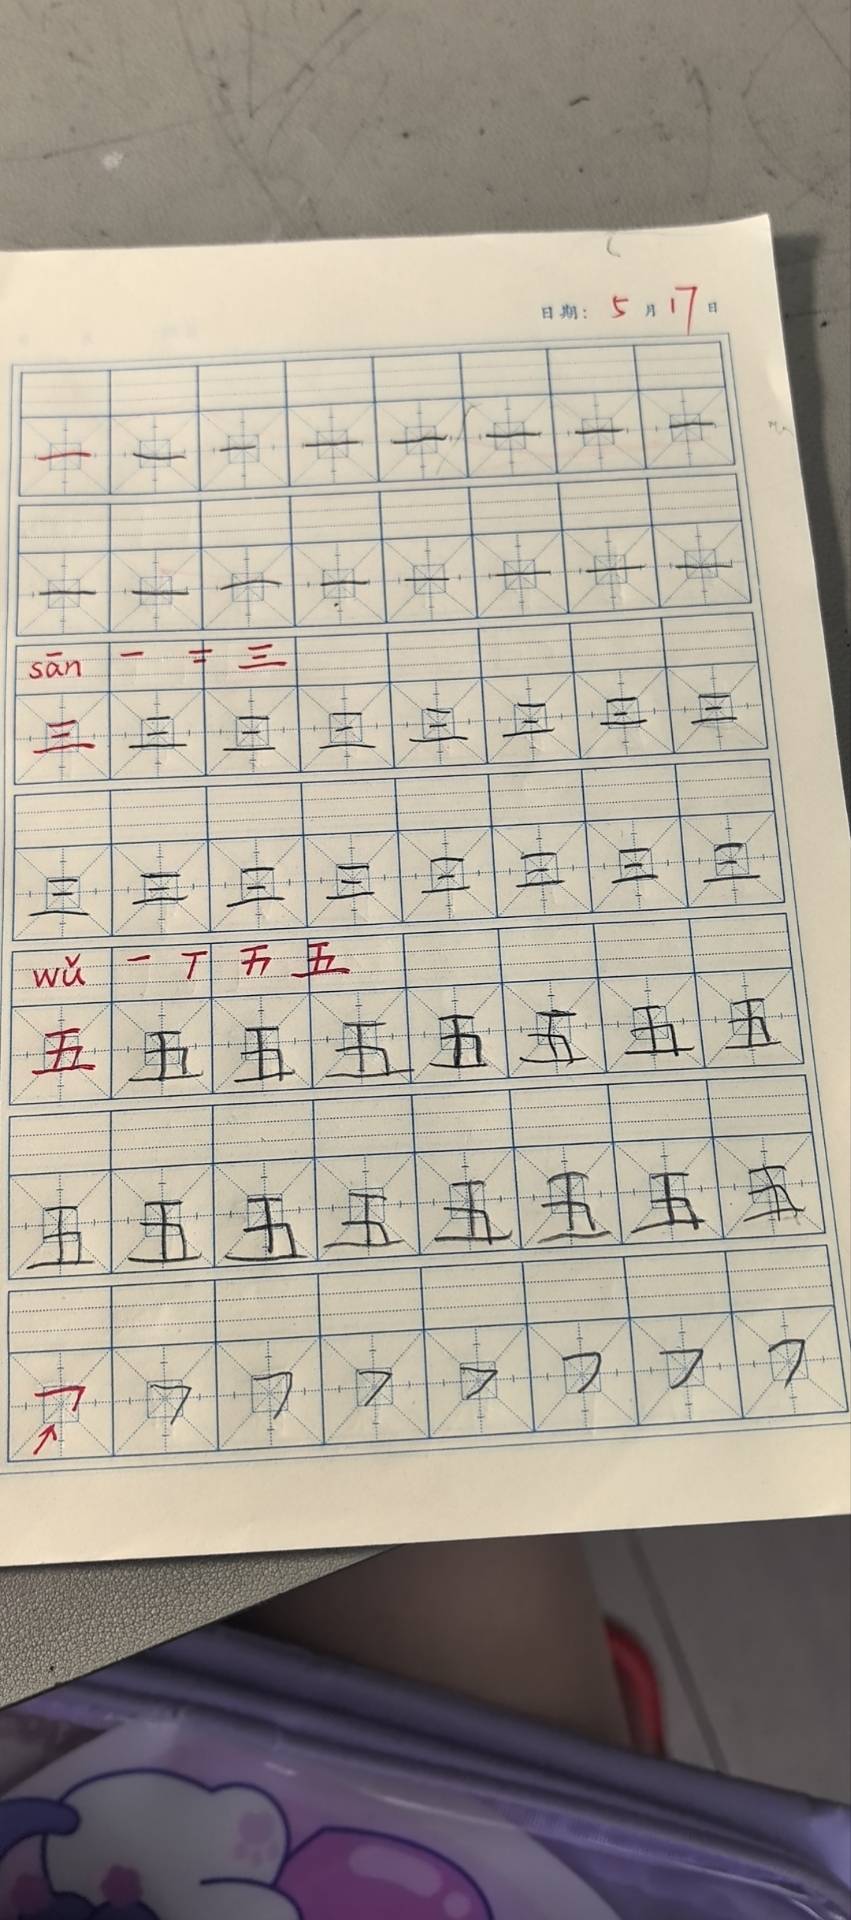 日期: 5 月 17 日
一 一 一 一 一 一 一 一
一 一 一 一 一 一 一 一
sān 一 二 三
三 三 三 三 三 三 三 三
三 三 三 三 三 三 三 三
wǔ 一 丅 五 五
五 五 五 五 五 五 五 五
五 五 五 五 五 五 五 五
㇇ ㇇ ㇇ ㇇ ㇇ ㇇ ㇇ ㇇